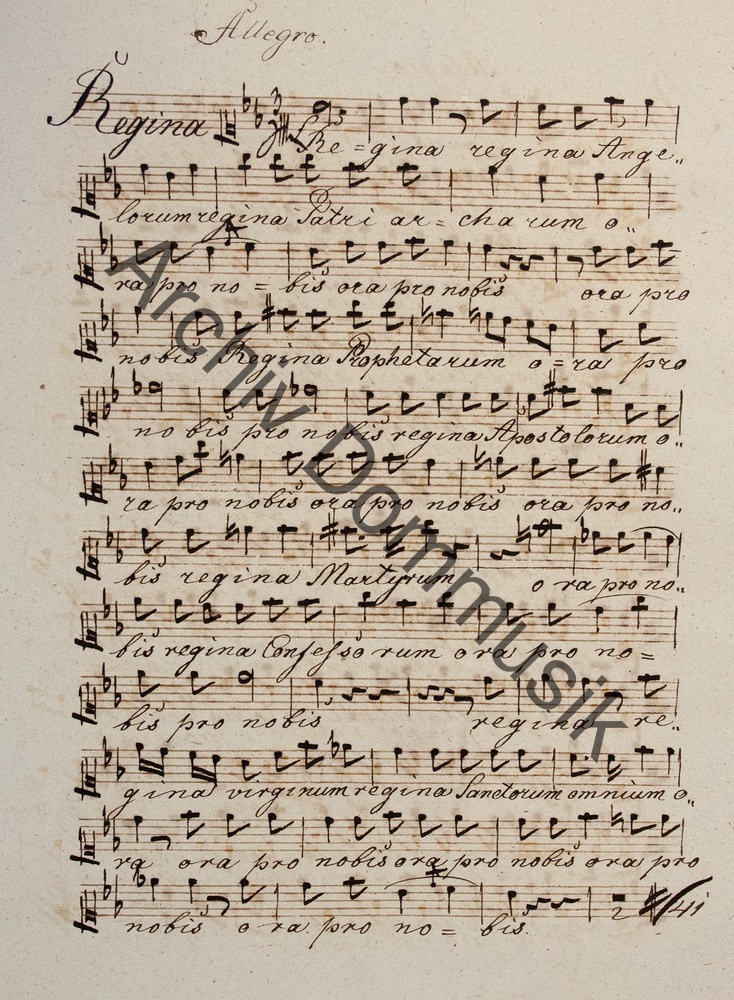 Allegro.
Regina
Re = gina regina Ange„
lorum regina Patri ar = cha rum o„
ra pro no = bis ora pro nobis ora pro
nobis Regina Prophetarum o = ra pro
no bis pro nobis regina Apostolorum o„
ra pro nobis ora pro nobis ora pro no„
bis regina Martyrum o ra pro no„
bis regina Confesso rum o ra pro no =
bis pro nobis regina re„
gina virginum regina Sanctorum omnium o„
ra ora pro nobis ora pro nobis ora pro
nobis o ra pro no = bis.
Archiv Dommusik